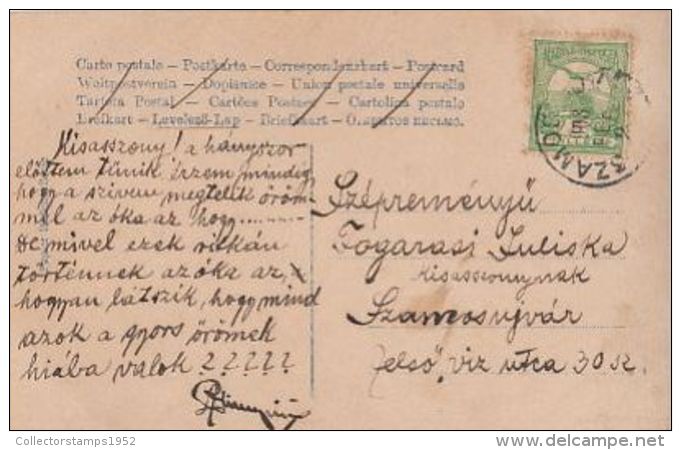 Carte postale – Postkarte – Correspondenzkart – Postcard
Weltpostverein – Dopisnice – Union postale universelle
Tarjeta Postal – Cartões Postaes – Cartolina postale
Levelező-Lap – Briefkaart –
Kisasszony! a hányszor
előttem tűnik érzem mindig,
hogy a szivem megtelik öröm-
mel az óka az hogy ..........
De mivel ezek ritkán
történnek az óka az,
hogyan látszik, hogy mind
azok a gyors örömek
hiába valok ?????
Szépreményű
Fogarasi Juliska
kisasszonynak
Szamosujvár
felső víz utca 30 sz.
SZAMOS
Collectorstamps1952